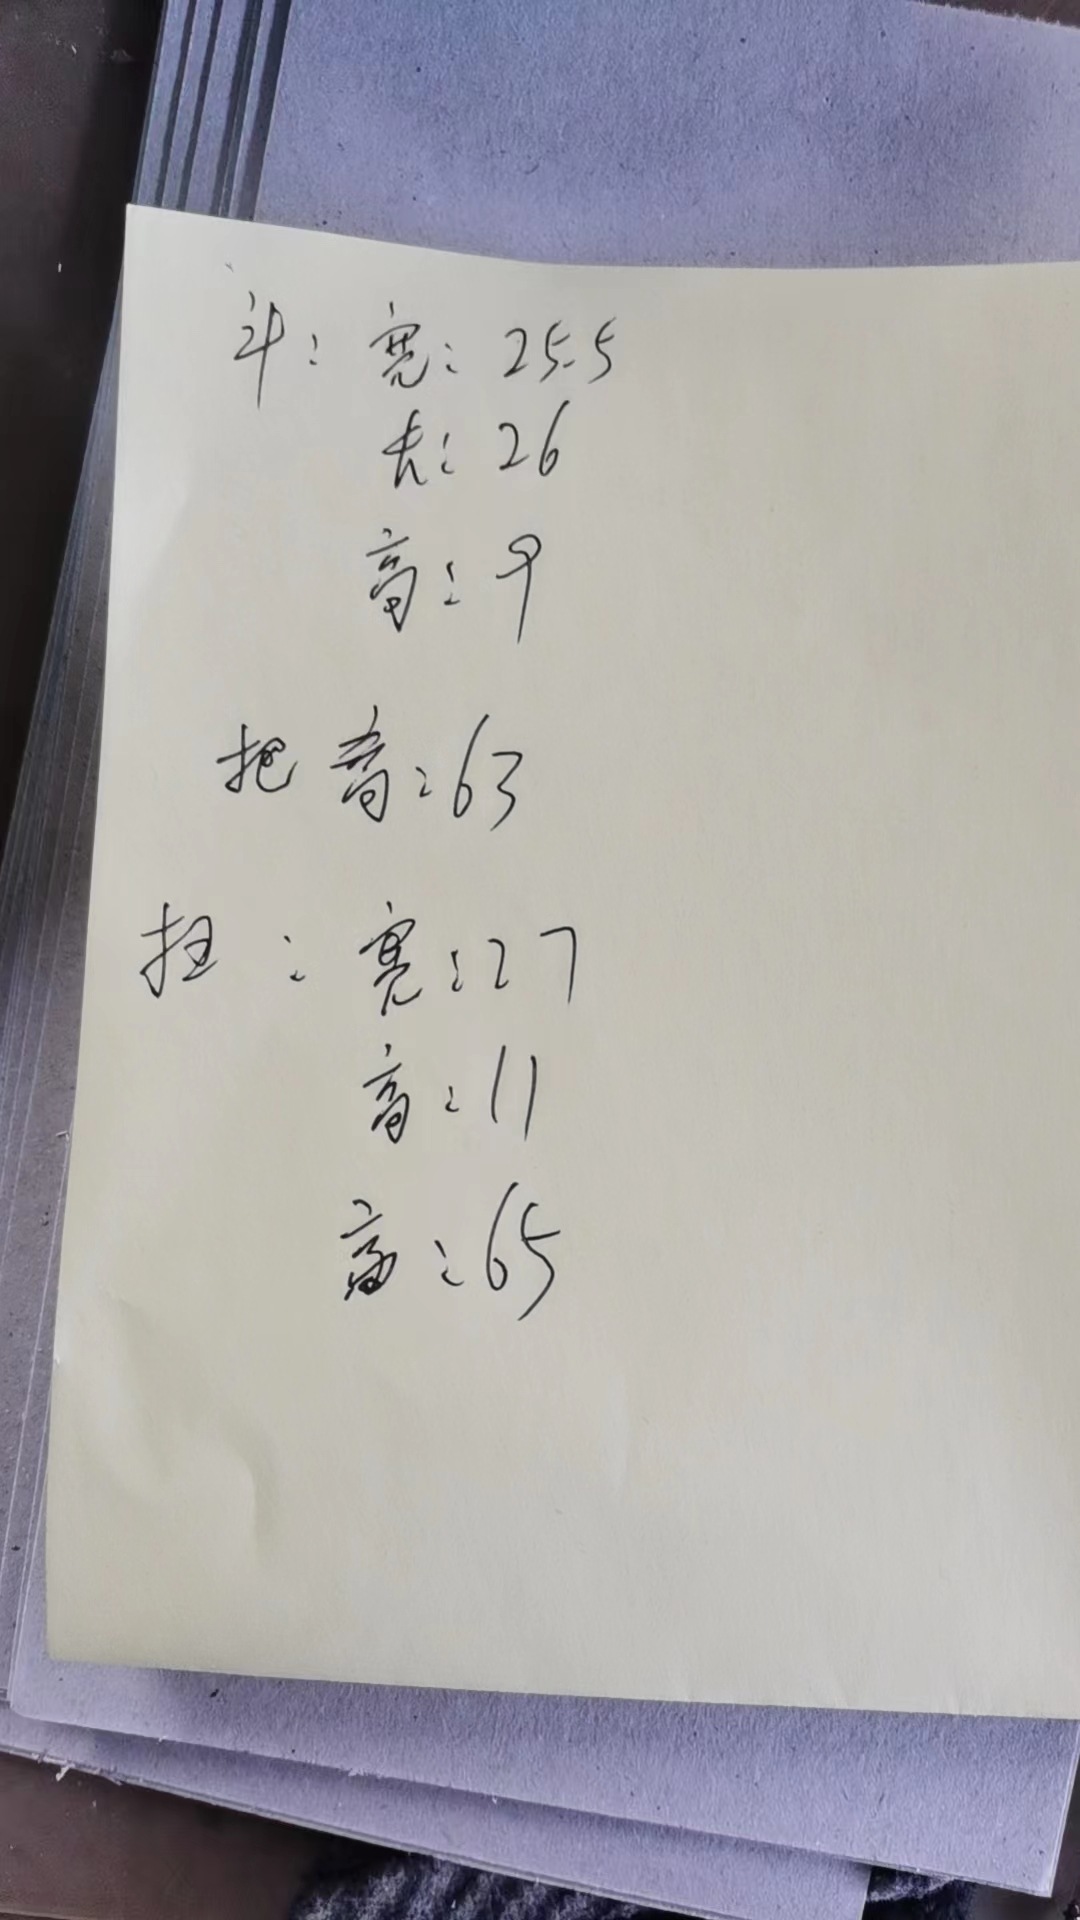 斗：宽：25.5
长：26
高：9
把高：63
扫：宽：27
高：11
高：65